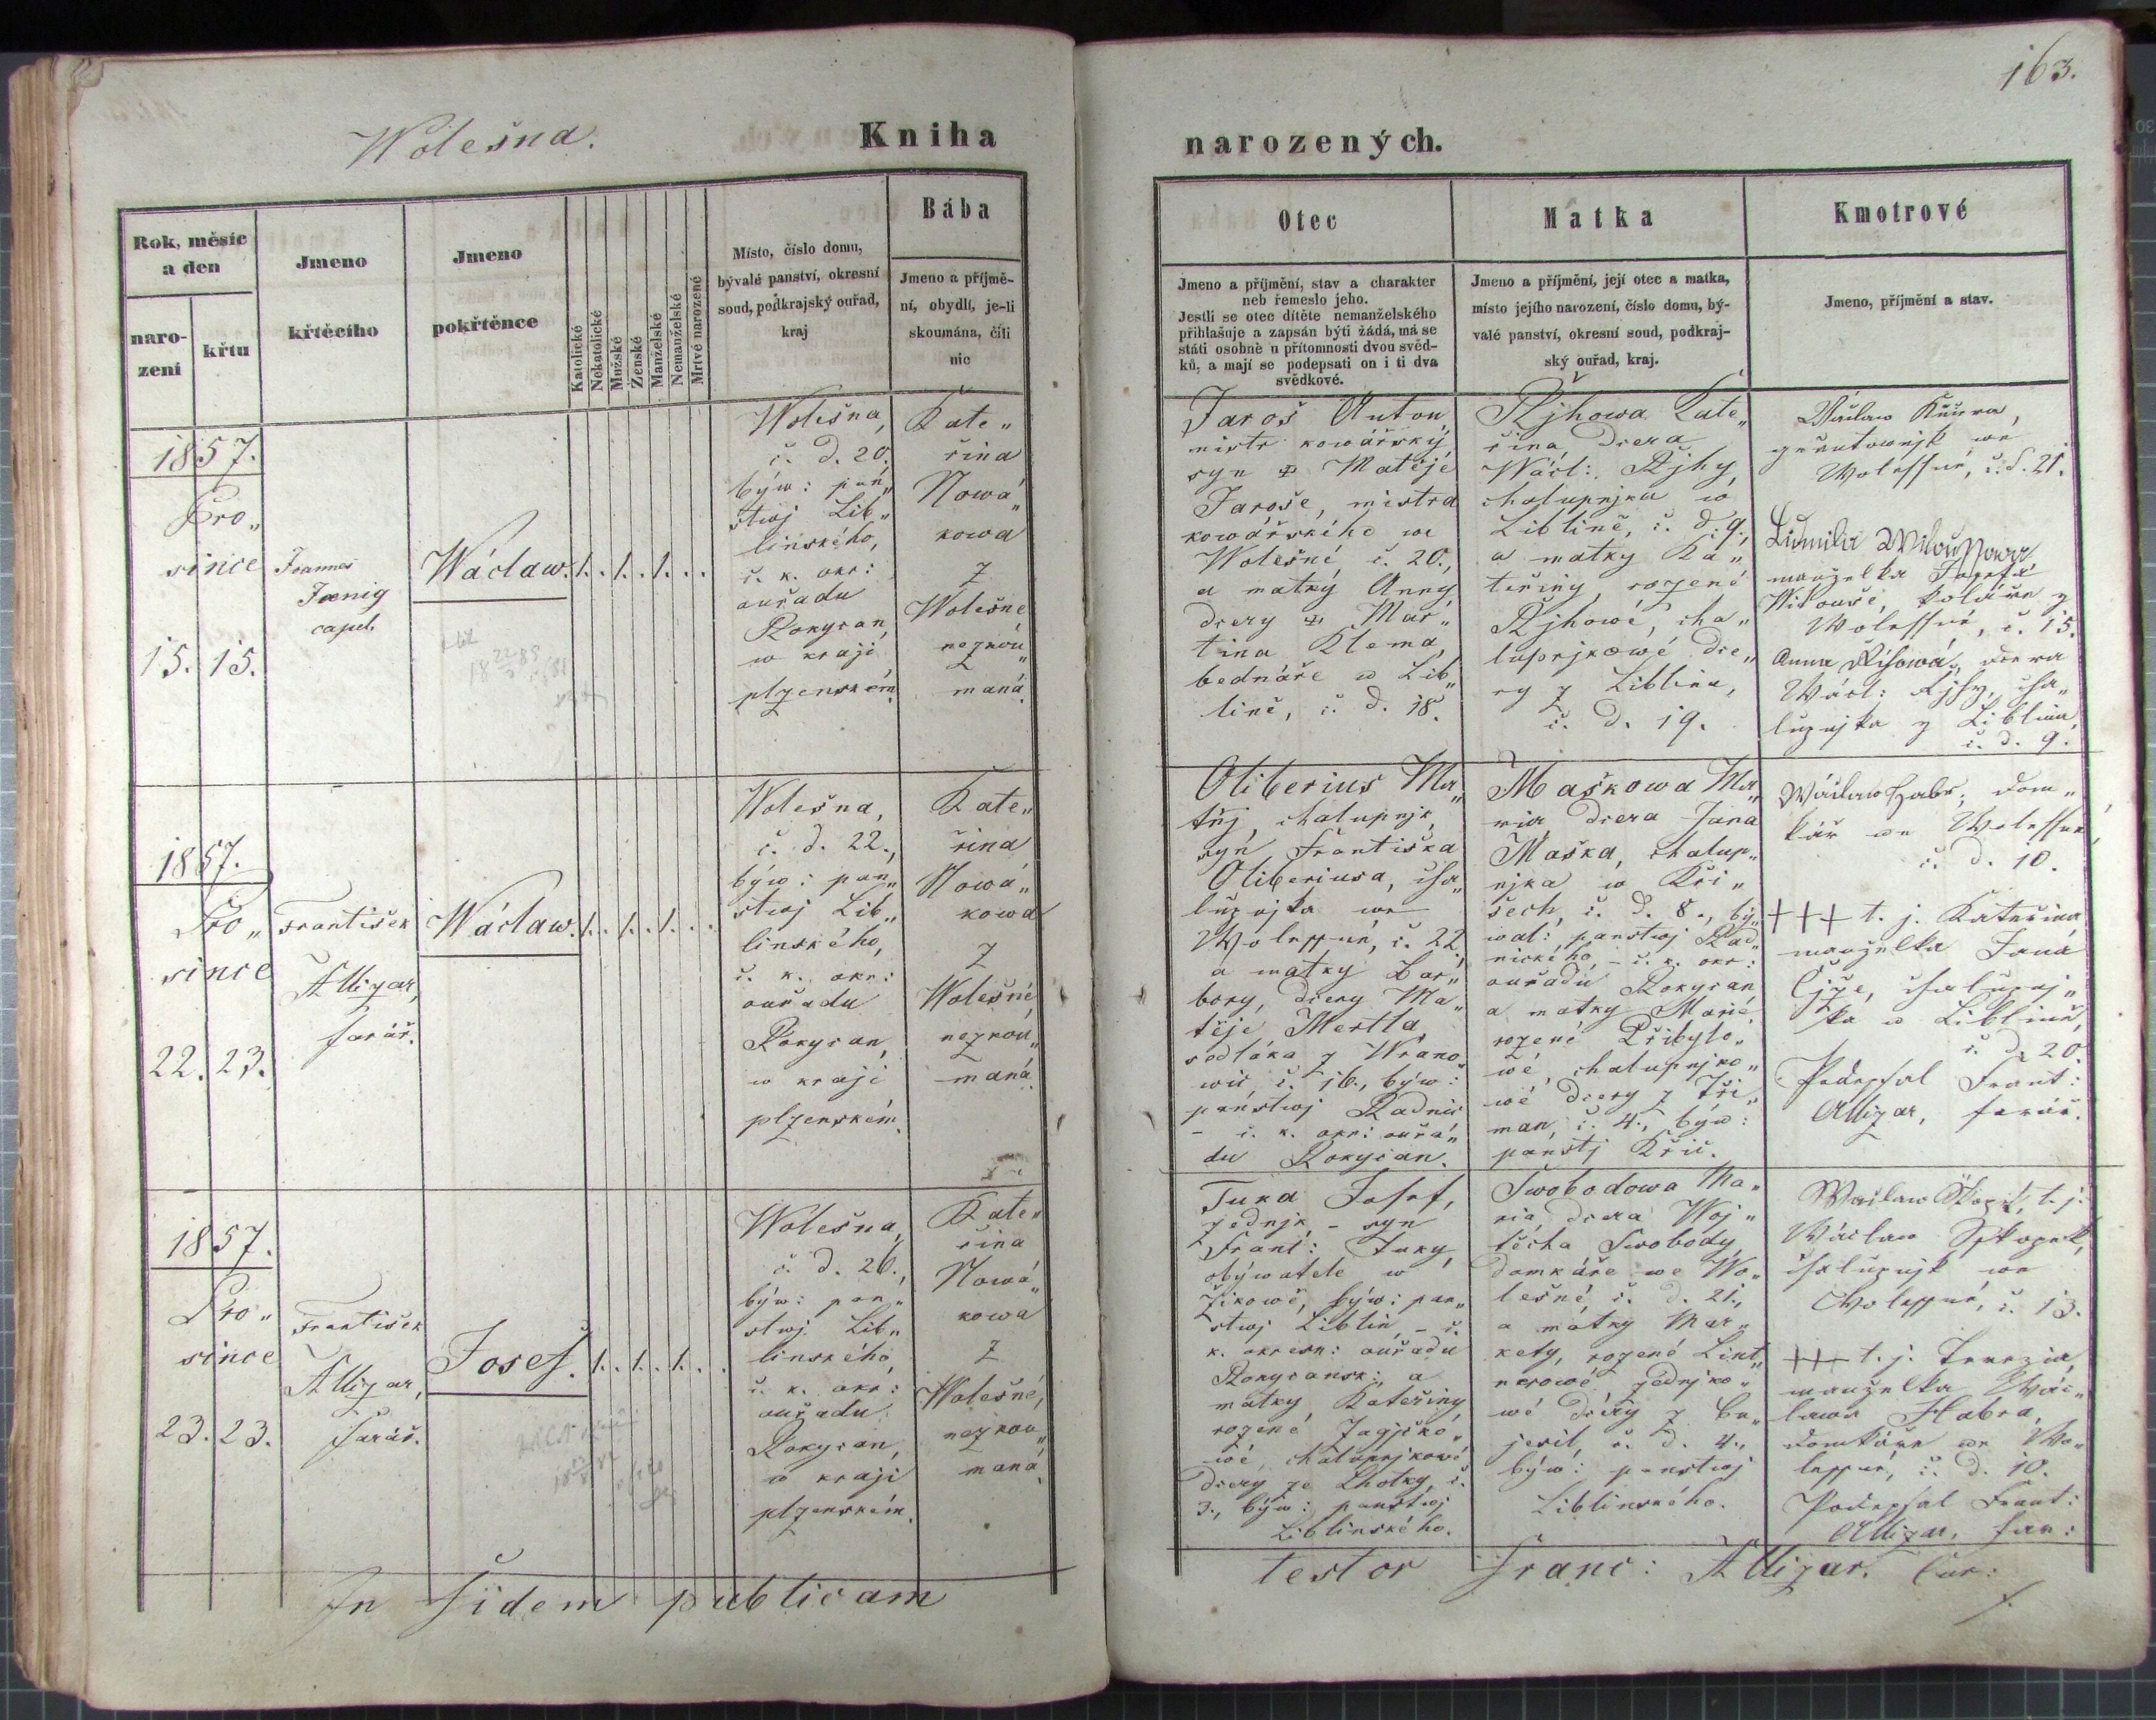 163.
Wolešna.
Kniha
narozených.
Rok, měsíc
a den
naro-
zení
křtu
Jmeno
křtěcího
Jmeno
pokřtěnce
Katolické
Nekatolické
Mužské
Ženské
Manželské
Nemanželské
Mrtvé narozené
Místo, číslo domu,
bývalé panství, okresní
soud, podkrajský ouřad,
kraj
Bába
Jmeno a příjmě-
ní, obydlí, je-li
skoumána, čili
nic
Otec
Jmeno a příjmění, stav a charakter
neb řemeslo jeho.
Jestli se otec dítěte nemanželského
přihlašuje a zapsán býti žádá, má se
státi osobně u přítomnosti dvou svěd-
ků, a mají se podepsati on i ti dva
svědkové.
Matka
Jmeno a příjmění, její otec a matka,
místo jejího narození, číslo domu, bý-
valé panství, okresní soud, podkraj-
ský ouřad, kraj.
Kmotrové
Jmeno, příjmění a stav.
1857.
Pro„
since
15. 15.
Joannes
Jænig
capel.
Wáclaw.
1. . 1. . 1. . .
Wolešna,
č. d. 20.
býw: pan„
stwj Lib„
linského,
c. k. okr:
ouřadu
Rokycan,
w kraji
plzenském.
Kate„
řina
Nowá„
kowa
z
Wolešné
nezkou„
maná.
Jaroš Anton,
mistr kowářský
syn Matěje
Jaroše, mistra
kowářského we
Wolešné, č. 20.,
a matky Anny
dcery Mar„
tina Klema,
bednáře w Lib„
lině, č. d. 18.
Ryhowa Kate„
řina, dcera
Wácl: Ryhy,
chalupnjka w
Liblině, č. d. 9.,
a matky Ka„
teřiny, rozené
Ryhowé, cha„
lupnjkowé dce„
ry z Liblina,
č. d. 19.
Wáclaw
we
Wolessné, č. d. 21.
Ludmila Wikoussowa
manželka Josefa
Wikouše, koláře z
Wolessné, č. 15.
Anna Říhowá, dcera
Wácl: Ryhy, cha„
lupnjka z Liblina,
č. d. 9.
1857.
Pro„
since
22. 23.
František
Alligar,
farář.
Wáclaw.
1. . 1. . 1. . .
Wolešna,
č. d. 22.,
býw: pan„
stwj Lib„
linského,
c. k. okr:
ouřadu
Rokycan,
w kraji
plzenském.
Kate„
řina
Nowá„
kowa
z
Wolešné,
nezkou„
maná.
Oliberius Ma„
těj, chalupnjk,
syn Františka
Oliberiusa, cha„
lupnjka we
Wolessné, č. 22.
a matky Bar„
bory, dcery Ma„
těje Mertla,
sedláka z Wrano„
wic č. 16., býw:
panstwj Radnic
- c. k. okr: ouřa„
du Rokycan.
Maškowa Ma„
ria dcera Jana
Maška, chalup„
njka w Kři„
šech, č. d. 8., bý„
wal: panstwj Rad„
nického, - c. k. okr:
ouřadu Rokycan
a matky Marie,
rozené Přibylo„
wé, chalupnjko„
wé dcery z Tři„
man, č. 4., býw:
panstj Křic.
Wáclaw Habr, dom„
kář we Wolessné,
č. d. 10.
+++ t. j. Kateřina,
manželka Jana
Čjže, chalupnj„
ka w Liblině,
č. d. 20.
Podepsal Frant:
Alligar, farář.
1857.
Pro„
since
23. 23.
František
Alligar,
farář.
Josef.
1. . 1. . 1. . .
Wolešna,
č. d. 26.,
býw: pan„
stwj Lib„
linského,
c. k. okr:
ouřadu
Rokycan,
w kraji
plzenském.
Kate„
řina
Nowá„
kowa
z
Wolešné,
nezkou„
maná.
Tuka Josef,
zednjk, - syn
Frant: Tuky,
obýwatele w
Žikowě, býw: pan„
stwj Liblin, - c.
k. okresn: ouřadu
Rokycansk:, a
matky Kateřiny,
rozené Zagjčko„
wé, chalupnjkowé
dcery ze Lhotky, č.
3., býw: panstwj
Liblinského.
Swobodowa Ma„
ria dcera Woj„
těcha Swobody
domkáře we Wo„
lešné, č. d. 21.,
a matky Mar„
kety, rozené Lint„
nerowé zednjko„
wé dcery z Bu„
jesil, č. d. 4.,
býw: panstwj
Liblinského.
Wáclaw t. j.
Wáclaw Sskopek,
chalupnjk we
Wolessné, č. 13.
+++ t. j. Terezia,
manželka Wác„
lawa Habra,
domkáře we Wo„
lessné, č. d. 10.
Podepsal Frant:
Alligar, far:
In fidem publicam
testor Franc: Alligar. Cur: